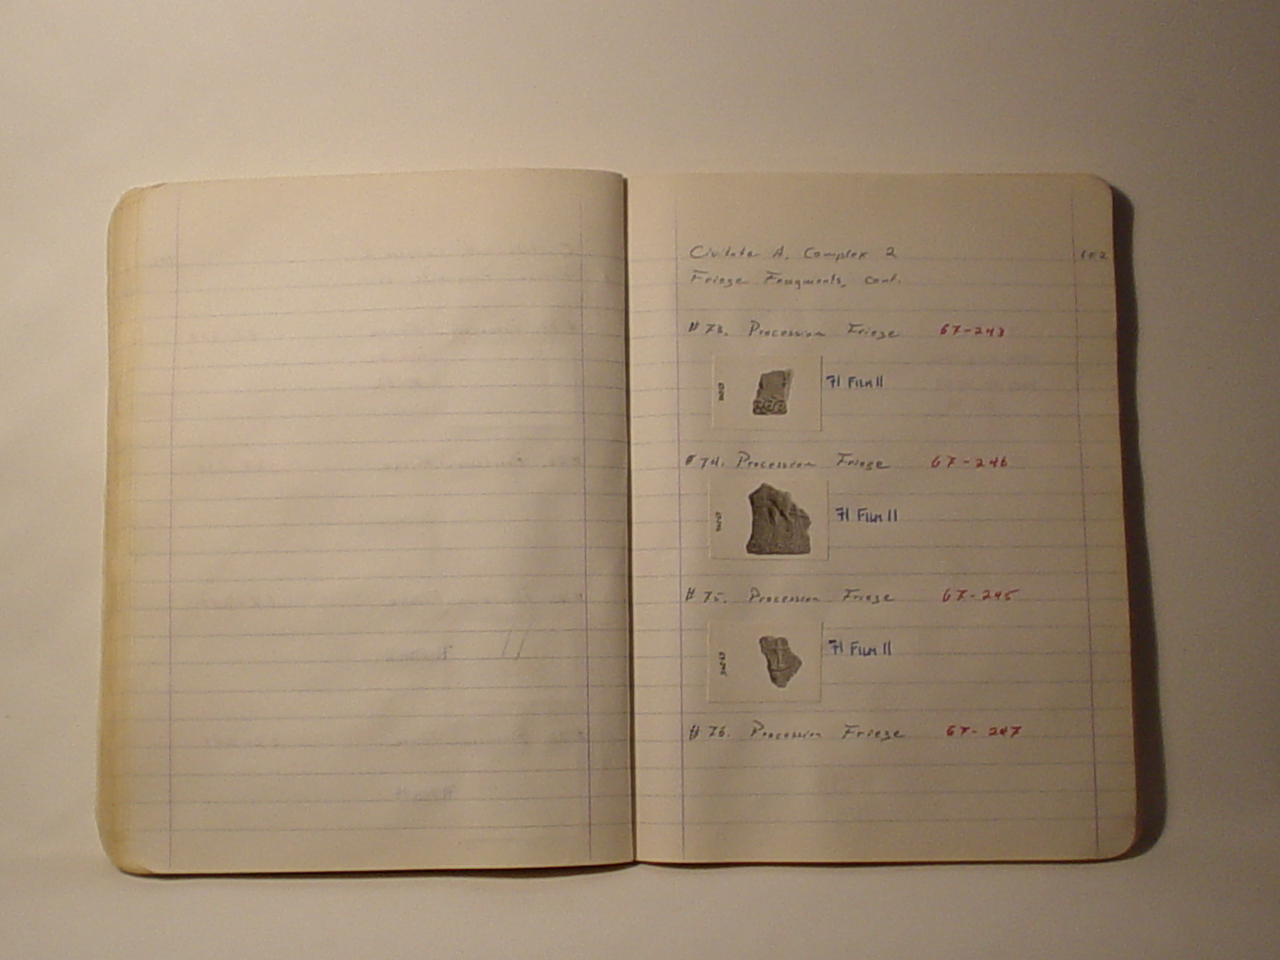 Civitate A, Complex 2
Frieze Fragments, cont.
#73. Procession Frieze 67-243
71 Film 11
#74. Procession Frieze 67-246
71 Film 11
#75. Procession Frieze 67-245
71 Film 11
#76. Procession Frieze 67-247